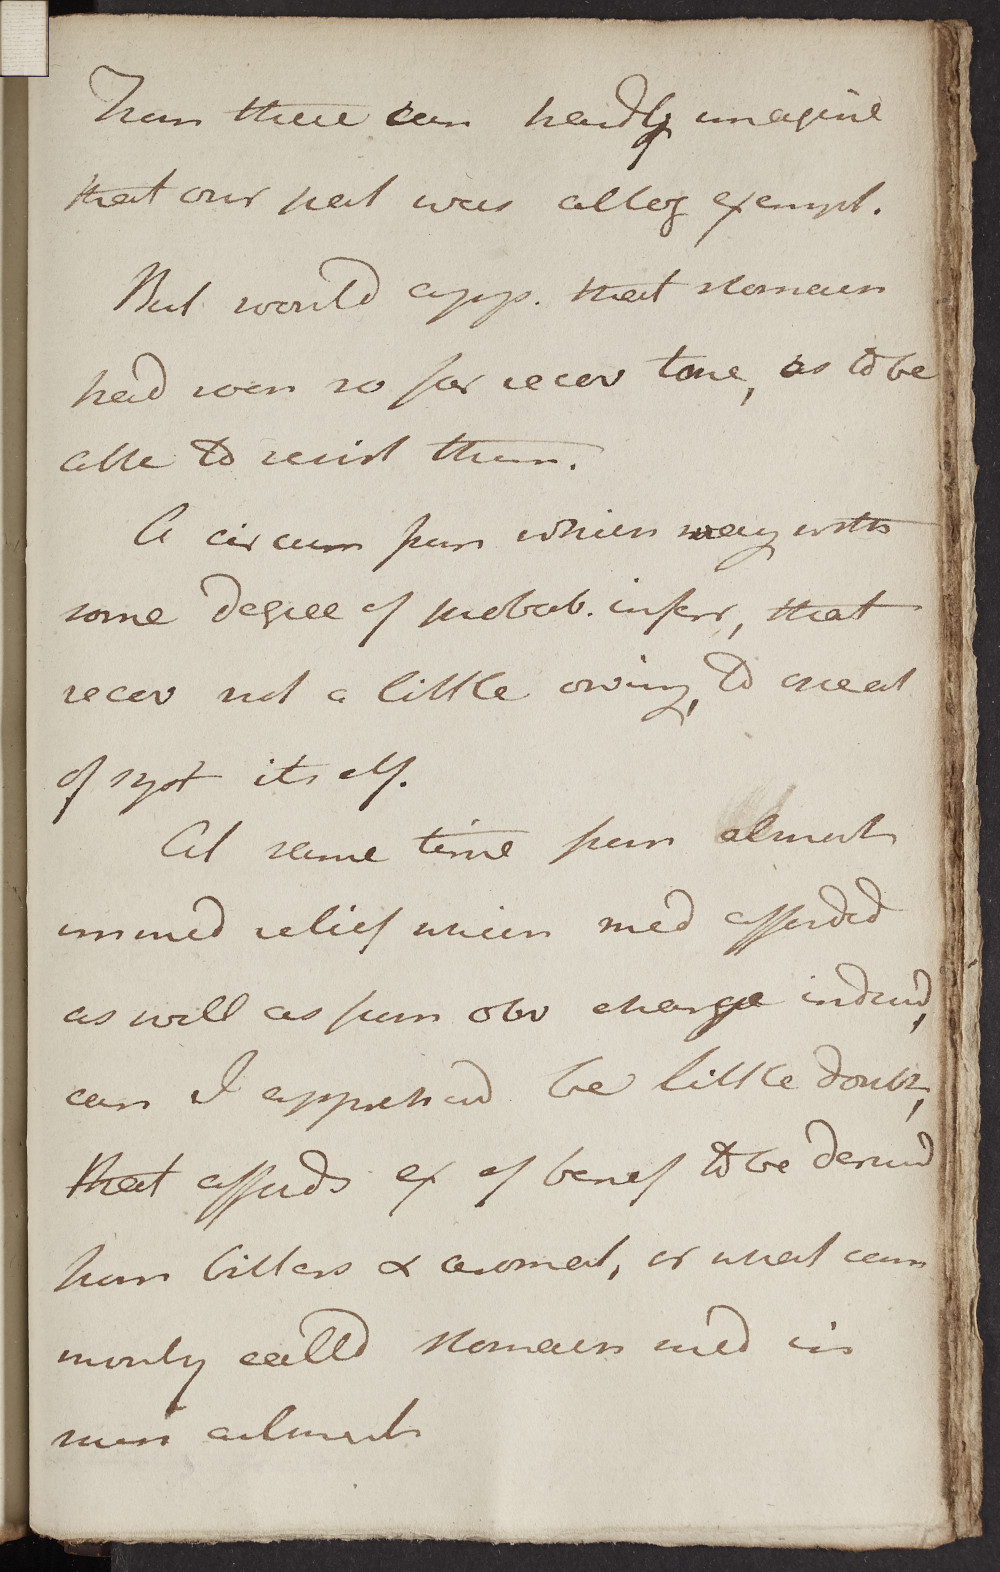 From these can hardly imagine
that our pat was altog exempt.
But would app. that stomach
had soon so far recov tone, as to be
able to resist them.
A circum from which may with
some degree of probab. infer, that
recov not a little owing, to
of syst itself.
At same time from almost
immed relief which med afforded
as well as from obv change induced,
can I apprehend be little doubt,
that affords ex of benef to be derived
from bitters & aromat, or what com
monly called stomach med in
such ailments